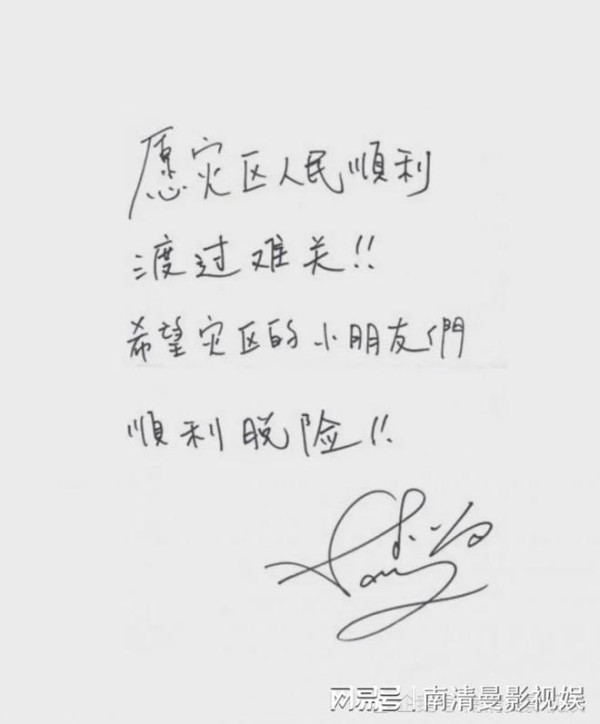 愿灾区人民順利
渡过难关!!
希望灾区的小朋友们
順利脱险!!
网易号 | 南清曼影视娱